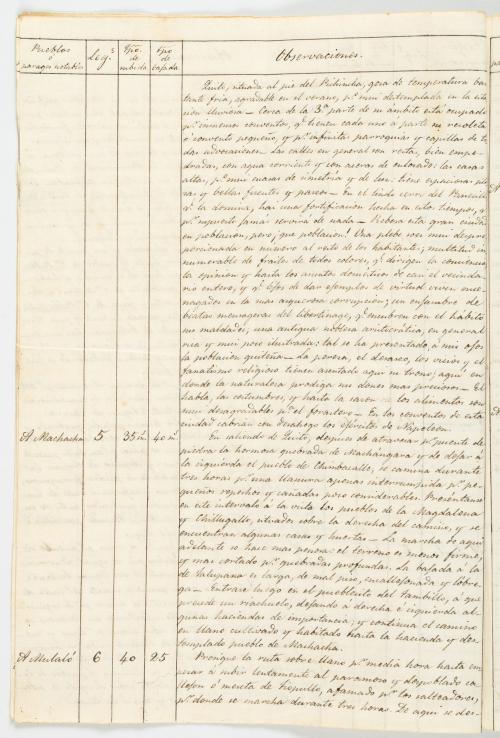 Pueblos ó parages notables
Leg.s
Tpo. de subida
Tpo de bajada
Observaciones.
Quito, situada al pie del Pichincha, goza de temperatura bas
tante fria, agradable en el verano, p.o mui destemplada en la esta
cion lluviosa — Cerca de la 3.a parte de su ámbito está ocupado
p.r inmensos conventos, q.e tienen cada uno á parte su recoleta
ó convento pequeño, y p.r infinitas parroquias y capillas de to
das advocaciones. Las calles en general son rectas, bien empe
dradas, con agua corriente y con aceras de enlosado: las casas
altas, p.o mui escasas de simetria y de luz: tiene espaciosas pla
zas y bellas fuentes y paseo — En el lindo cerro del Panecillo
q.e la domina, hai una fortificacion hecha en estos tiempos, q.e
p.r supuesto jamas servirá de nada — Rebosa esta gran ciudad
en poblacion, pero; que poblacion! Una plebe soez mui despro
porcionada en número al resto de los habitantes; multitud in
numerable de frailes de todos colores, q.e dirigen la conciencia,
la opinion y hasta los asuntos domésticos de casi el vecinda
rio entero, y q.e lejos de dar ejemplos de virtud viven ence
nagados en la mas asquerosa corrupcion; un enjambre de
beatas menageras del libertinage, q.e encubren con el hábito
sus maldades; una antigua nobleza aristocrática, en general
rica y mui poco ilustrada: tal se ha presentado á mis ojos
la poblacion quiteña — La pereza, el desaseo, los vicios y el
fanatismo religioso tienen asentado aqui su trono; aqui en
donde la naturaleza prodiga sus dones mas preciosos — El
habla, las costumbres, y hasta la sazon de los alimentos son
mui desagradables p.a el forastero — En los conventos de esta
ciudad cabrian con desahogo los ejércitos de Napoleon.
A Machacha 5 35 m. 40 m.
En saliendo de Quito, despues de atravesar p.r puente de
piedra la hermosa quebrada de Machángara y de dejar á
la izquierda el pueblo de Chimbacalle, se camina durante
tres horas p.r una llanura apenas interrumpida p.r pe
queños repechos y cañadas poco considerables. Preséntanse
en este intervalo á la vista los pueblos de la Magdalena
y Chillogallo, situados sobre la derecha del camino, y se
encuentran algunas casas y huertas — La marcha de aqui
adelante se hace mas penosa: el terreno es menos firme,
y mas cortado p.r quebradas profundas. La bajada á la
de Jalupana es larga, de mal piso, encallejonada y lóbre
ga — Entrase luego en el pueblecito del Tambillo, á que
precede un riachuelo, dejando á derecha é izquierda al
gunas haciendas de importancia; y continúa el camino
en llano cultivado y habitado hasta la hacienda y des
templado pueblo de Machacha.
A Mulaló 6 40 25
Prosigue la ruta sobre llano p.r media hora hasta em
pezar á subir lentamente al paramoso y despoblado ca
llejon ó meseta de Tiopullo, afamado p.r los salteadores,
p.r donde se marcha durante tres horas. De aqui se des-